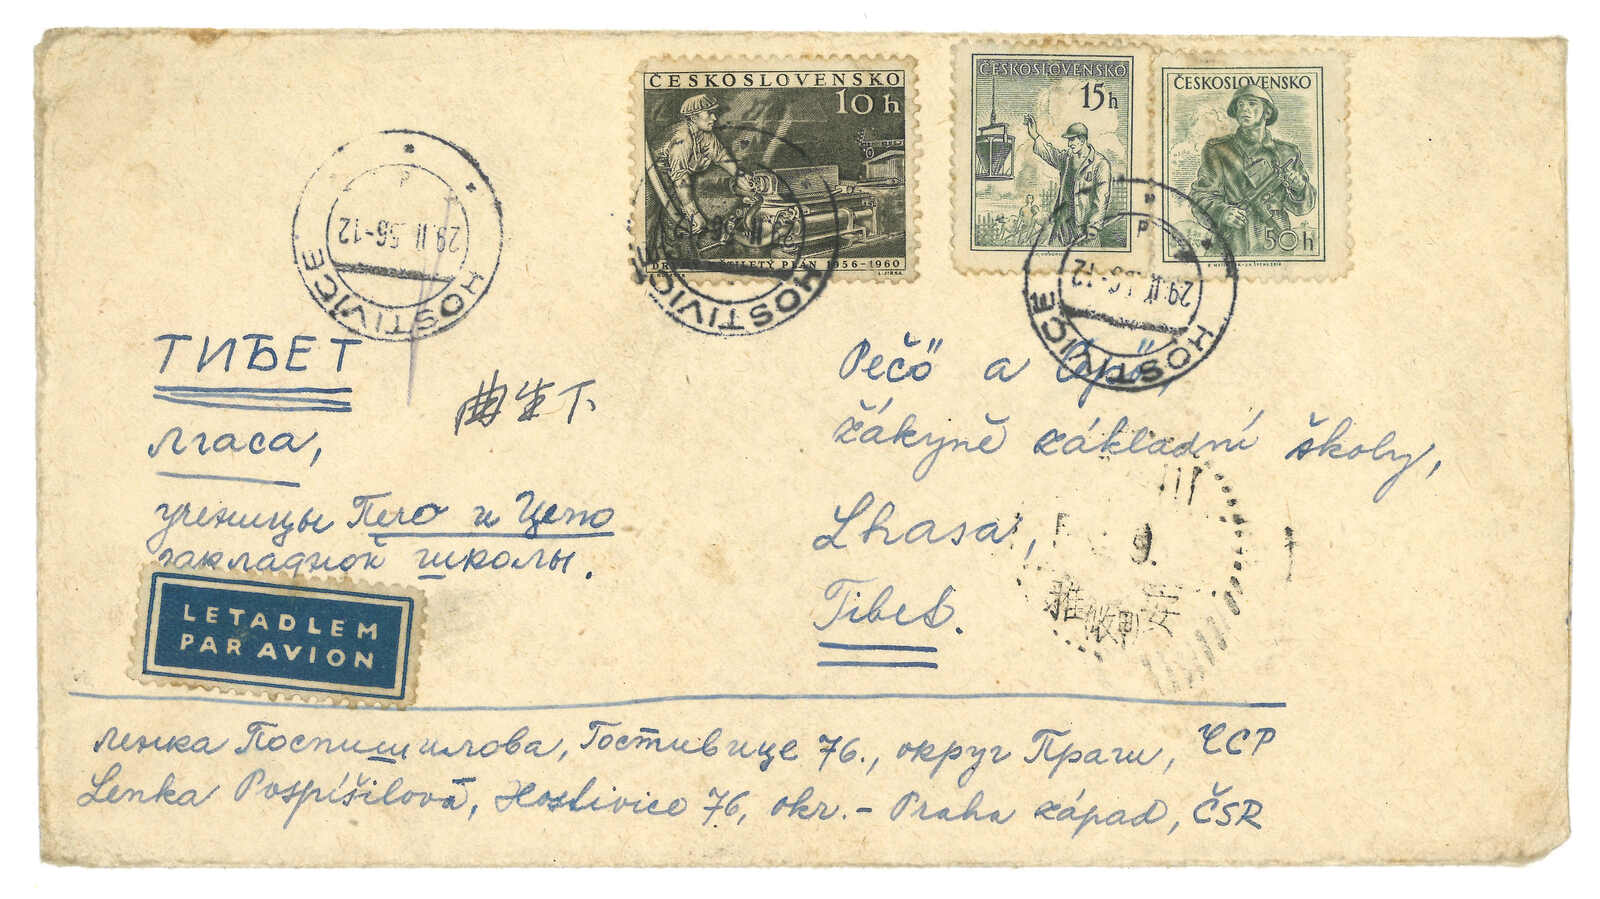 ČESKOSLOVENSKO
10 h
PLÁN 1956-1960
ČESKOSLOVENSKO
15h
ČESKOSLOVENSKO
50h
HOSTIVICE
29.II.56-12
HOSTIVICE
HOSTIVICE
ТИБЕТ
Лгаса,
ученицы Печо и Цепо
закладной школы.
Pečö a
žákyně základní školy,
Lhasa,
Tibet.
LETADLEM
PAR AVION
Ленка Поспишилова, Гостивице 76., округ Праги, ЧСР
Lenka Pospíšilová, Hostivice 76, okr. - Praha západ, ČSR